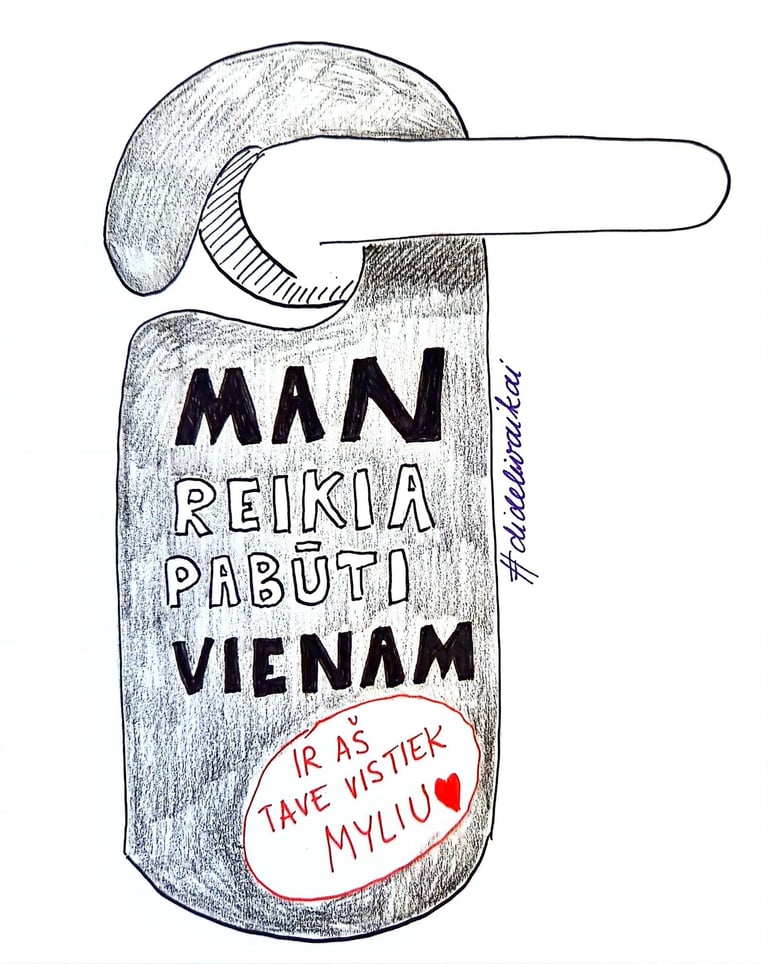 MAN
REIKIA
PABŪTI
VIENAM
IR AŠ
TAVE VISTIEK
MYLIU
#dideliuvaikai